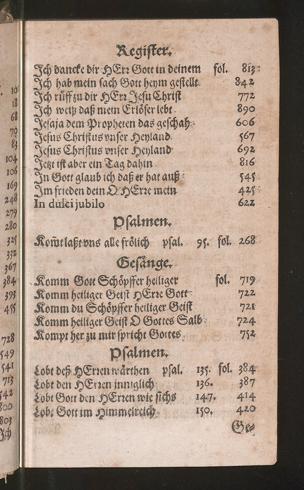 Register.
Ich dancke dir HErr Gott in deinem fol. 813
Ich hab mein sach Gott heym gestelt 842
Ich rüff zu dir HErr Jesu Christ 772
Ich weiß daß mein Erlöser lebt 890
Jesaja dem Propheten das geschah 606
Jesus Christus vnser Heyland 567
Jesus Christus vnser Heyland 692
Jetzt ist aber ein Tag dahin 816
In Gott glaub ich daß er hat auß 545
Im frieden dein O HErre mein 425
In dulci jubilo 622
Psalmen.
Kom̃t laßt vns alle frölich psal. 95. fol. 268
Gesänge.
Komm Gott Schöpffer heiliger fol. 719
Komm heiliger Geist HErre Gott 722
Komm du Schöpffer heiliger Geist 721
Komm heiliger Geist O Gottes Salb 724
Kompt her zu mir spricht Gottes 752
Psalmen.
Lobt deß HErren wärthen psal. 135. fol. 384
Lobt den HErren inniglich 136. 387
Lobt Gott den HErren wie sichs 147. 414
Lobt Gott im Himmelreich 150. 420
Ge-
10
18
68
70
83
104
106
169
248
279
280
325
332
367
384
393
455
728
549
541
713
542
800
803
Ich